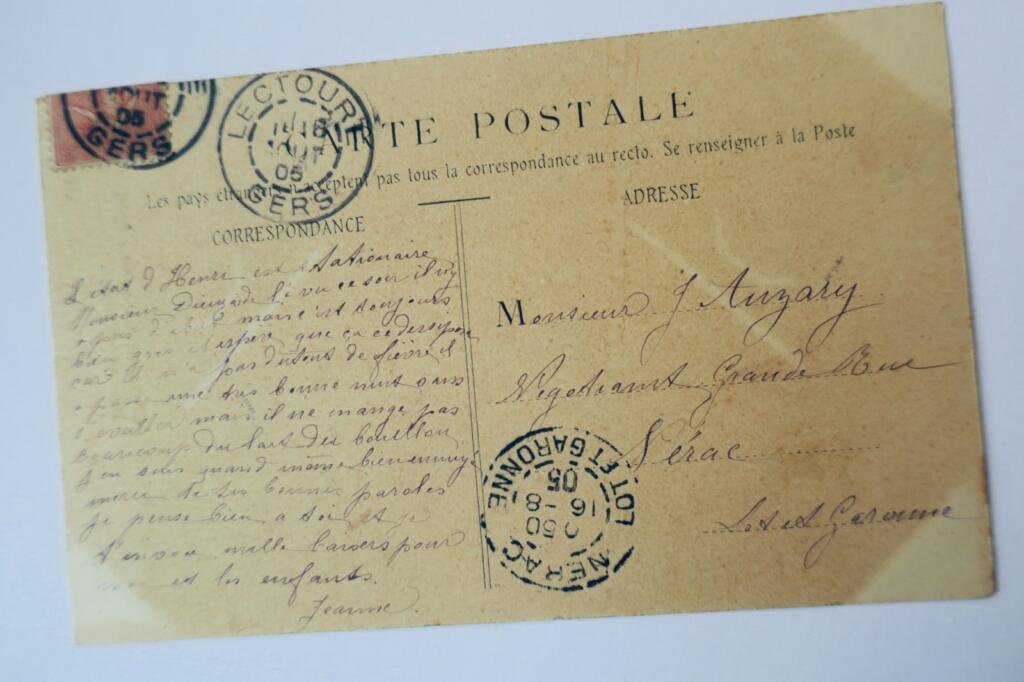 LECTOURE
GERS
AOUT
05
GERS
CARTE POSTALE
Les pays étrangers n'acceptent pas tous la correspondance au recto. Se renseigner à la Poste
CORRESPONDANCE
ADRESSE
L'état d'Henri est stationaire
Monsieur l'a vu ce soir il n'y
a pas mais c'est toujours
bien gros il espère que ça ce
car il n'a pas du tout de fièvre il
a passé une très bonne nuit sans
s'eveiller mais il ne mange pas
beaucoup du lait du bouillon
J'en suis quand même bien ennuyé
merci de tes bonnes paroles
je pense bien a toi et je
t'envoie mille baisers pour
moi et les enfants.
Jeanne.
Monsieur J Auzary
Négotiant Grande Rue
Nérac
Lot et Garonne
NERAC
16-8
05
LOT ET GARONNE